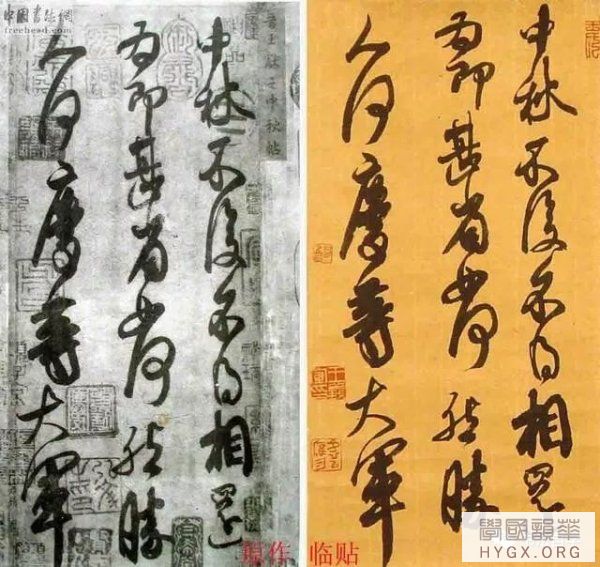 中國書法網
freehead.com
晉王獻之中秋帖
中秋不復不得相還
為即甚省如何然勝
人何慶等大軍
原作
中秋不復不得相還
為即甚省如何然勝
人何慶等大軍
临贴
華韻國學
HYGX.ORG